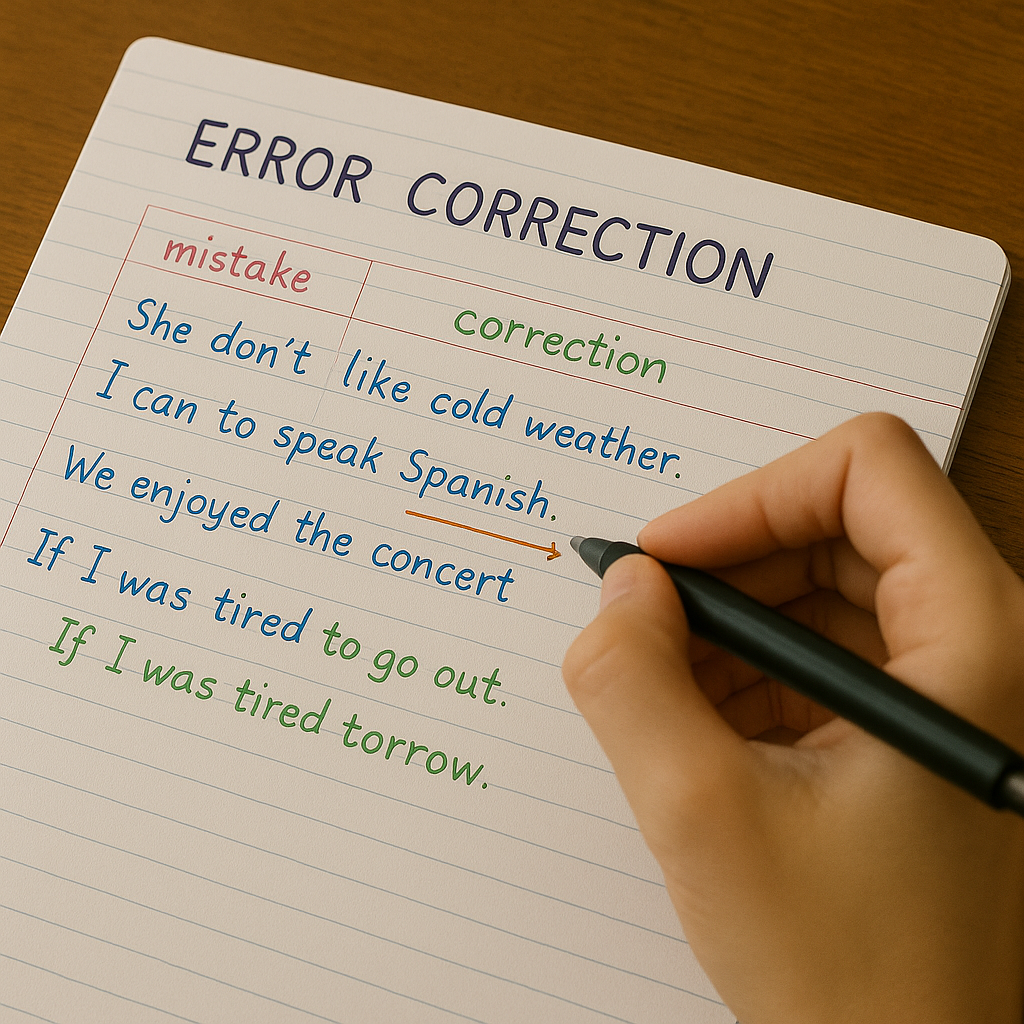 ERROR CORRECTION
mistake
correction
She don't like cold weather.
I can to speak Spanish.
We enjoyed the concert
If I was tired to go out.
If I was tired torrow.